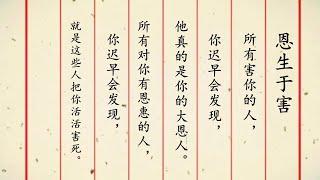 恩生于害
所有害你的人，
你迟早会发现，
他真的是你的大恩人。
所有对你有恩惠的人，
你迟早会发现，
就是这些人把你活活害死。